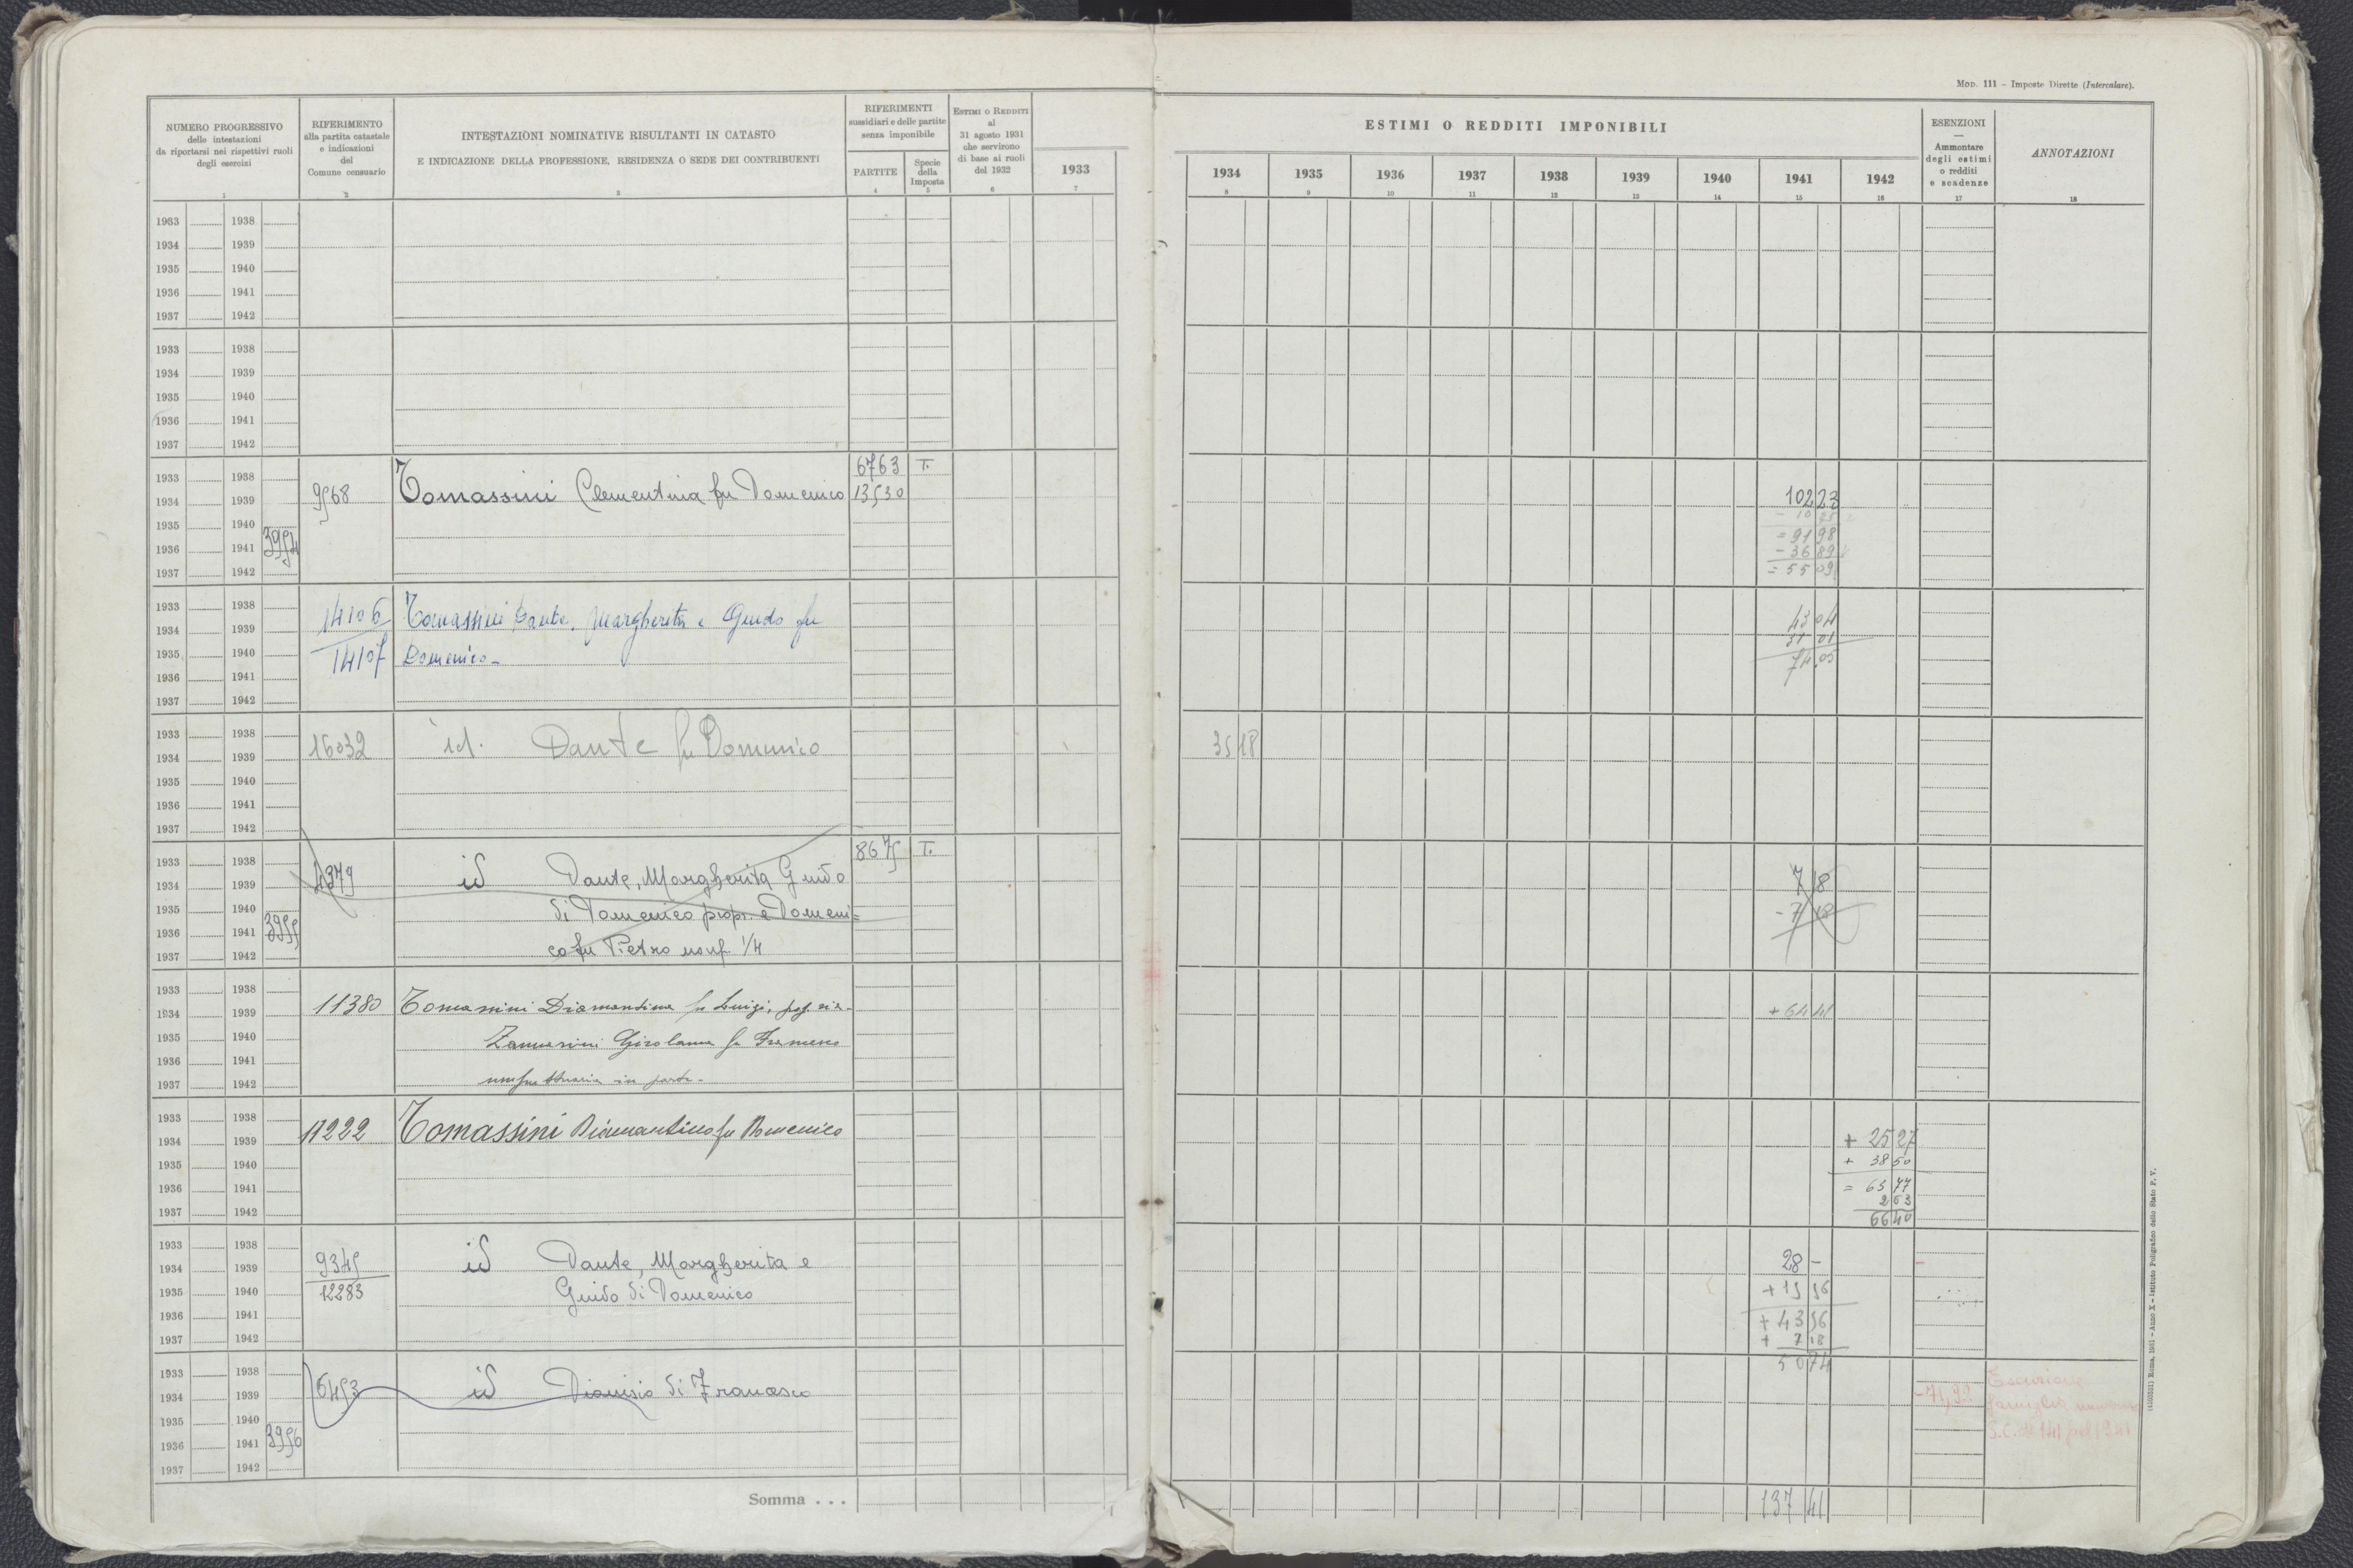 MOD. 111 - Imposte Dirette (Intercalare).
NUMERO PROGRESSIVO
delle intestazioni
da riportarsi nei rispettivi ruoli
degli esercizi
1
RIFERIMENTO
alla partita catastale
e indicazioni
del
Comune censuario
2
INTESTAZIONI NOMINATIVE RISULTANTI IN CATASTO
E INDICAZIONE DELLA PROFESSIONE, RESIDENZA O SEDE DEI CONTRIBUENTI
3
RIFERIMENTI
sussidiari e delle partite
senza imponibile
PARTITE
4
Specie
della
Imposta
5
ESTIMI O REDDITI
al
31 agosto 1931
che servirono
di base ai ruoli
del 1932
6
1933
7
ESTIMI O REDDITI IMPONIBILI
1934 1935 1936 1937 1938 1939 1940 1941 1942
8 9 10 11 12 13 14 15 16
ESENZIONI
—
Ammontare
degli estimi
o redditi
e scadenze
17
ANNOTAZIONI
18
1933 1938
1934 1939
1935 1940
1936 1941
1937 1942
1933 1938
1934 1939
1935 1940
1936 1941
1937 1942
1933 1938 6763 T.
1934 1939 9568 Tomassini Clementina fu Domenico 13530 102 23
1935 1940 - 10 25
1936 1941 3954 = 91 98
- 36 89
1937 1942 = 55 09
1933 1938 14106 Tomassini Dante, Margherita e Guido fu 43 04
1934 1939 31 01
1935 1940 14107 Domenico - 74.05
1936 1941
1937 1942
1933 1938
1934 1939 16032 id. Dante fu Domenico 35 18
1935 1940
1936 1941
1937 1942
1933 1938 8675 T.
1934 1939 4379 id Dante, Margherita Guido 7 18
1935 1940 di Domenico propr. e Domeni= - 7 18
1936 1941 3955
1937 1942 co fu Pietro usuf. 1/4
1933 1938
1934 1939 11380 Tomassini Diamantina fu Luigi, + 64 41
1935 1940 Girolama fu Francesco
1936 1941
1937 1942 usufruttuaria in parte -
1933 1938
1934 1939 11222 Tomassini Diamantino fu Domenico + 25 27
1935 1940 + 38 50
1936 1941 = 63 77
1937 1942 2 63
66 40
1933 1938
1934 1939 9345 id Dante, Margherita e 28 -
1935 1940 12283 Guido di Domenico + 15 56
1936 1941 + 43 56
1937 1942 + 7 18
50 74
1933 1938
1934 1939 6453 id Dionisio di Francesco - 71,92 Esenzione
1935 1940 famiglia
1936 1941 3956
1937 1942
Somma . . . 137 41
(4103501) Roma, 1931 - Anno X - Istituto Poligrafico dello Stato P. V.